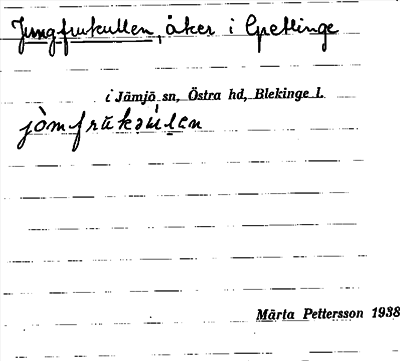 Jungfrukullen, åker i Gretlinge
i Jämjö sn, Östra hd, Blekinge l.
Märta Pettersson 1938